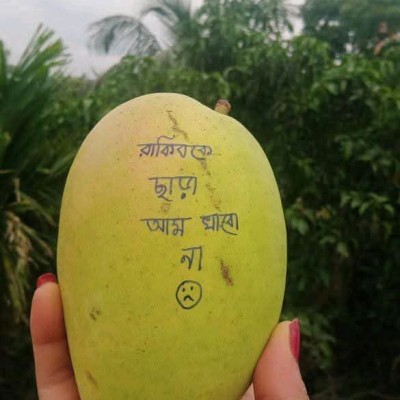 রাকিবকে
ছাড়া
আম খাবো
না